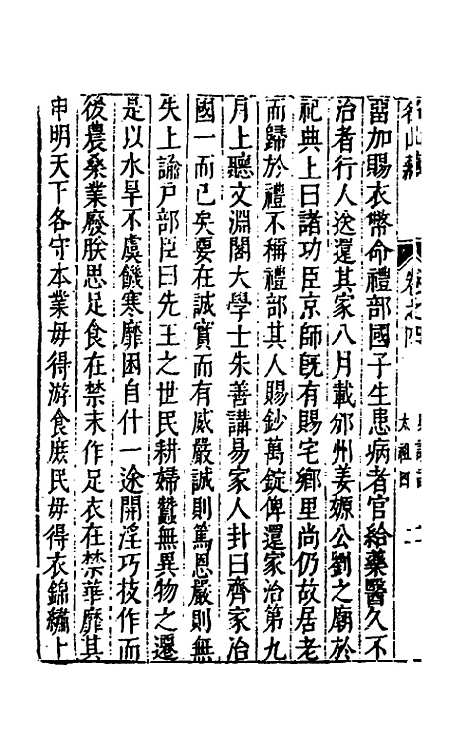 名山藏 卷之四 典謨記 太祖四 二
留加賜衣幣命禮部國子生患病者官給藥醫久不
治者行人送還其家八月載邠州姜嫄公劉之廟於
祀典上曰諸功臣京師既有賜宅鄉里尚仍故居老
而歸於禮不稱禮部其人賜鈔萬錠俾還家治第九
月上聽文淵閣大學士朱善講易家人卦曰齊家治
國一而已矣要在誠實而有威嚴誠則篤恩嚴則無
失上諭戸部臣曰先王之世民耕婦蠶無異物之遷
是以水旱不虞饑寒靡困自什一途開淫巧技作而
後農桑業廢朕思足食在禁末作足衣在禁華靡其
申明天下各守本業毋得游食庶民毋得衣錦繡上